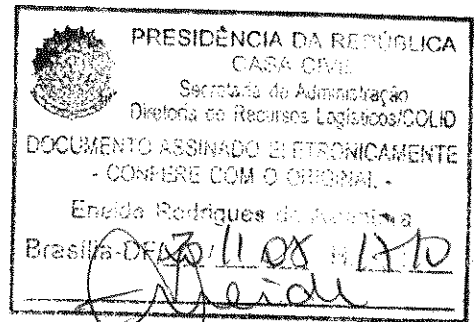 PRESIDÊNCIA DA REPÚBLICA
CASA CIVIL
Secretaria de Administração
Diretoria de Recursos Logísticos/COLID
DOCUMENTO ASSINADO ELETRONICAMENTE
- CONFERE COM O ORIGINAL -
Eneida Rodrigues de
Brasília-DF